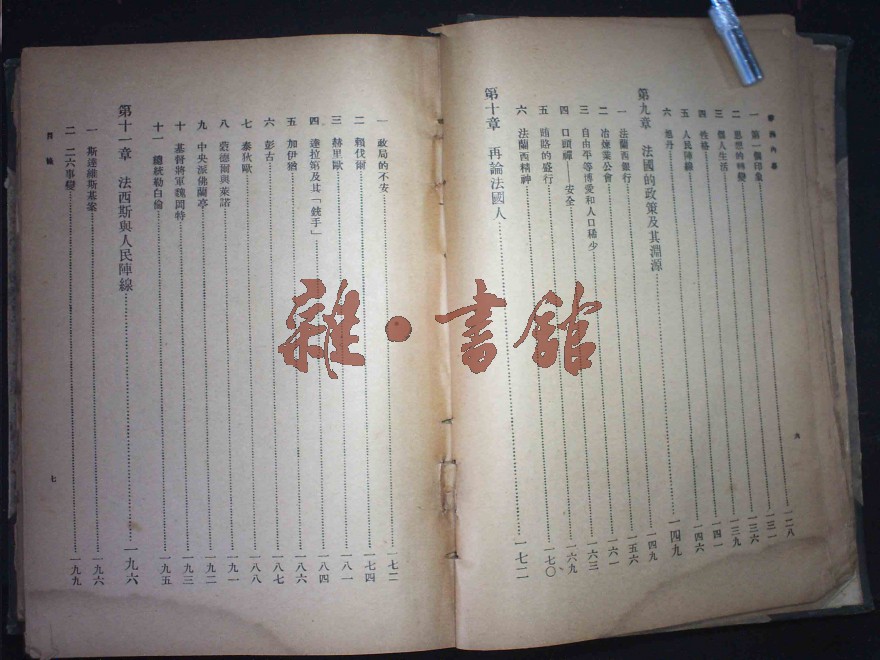 歐洲內幕
一 第一個印象 一二八
二 思想的轉變 一三一
三 個人生活 一三六
四 性格 一三九
五 人民陣線 一四一
六 丹 一四六
第九章 法國的政策及其淵源 一四九
一 法蘭西銀行 一四九
二 冶煉業公會 一五六
三 自由平等博愛和人口稀少 一六一
四 口頭禪——安全 一六三
五 賄賂的盛行 一六九
六 法蘭西精神 一七〇
第十章 再論法國人 一七二
六
一 政局的不安 一七二
二 賴伐爾 一七四
三 赫里歐 一八一
四 達拉第及其「銃手」 一八四
五 加伊猶 一八六
六 彭古 一八七
七 泰狄歐 一八八
八 德爾與萊諾 一九一
九 中央派佛蘭亭 一九二
十 基督將軍魏岡特 一九三
十一 總統勒白倫 一九五
第十一章 法西斯與人民陣線 一九六
一 斯達維斯基案 一九六
二 二六事變 一九九
目錄
七
雜·書館